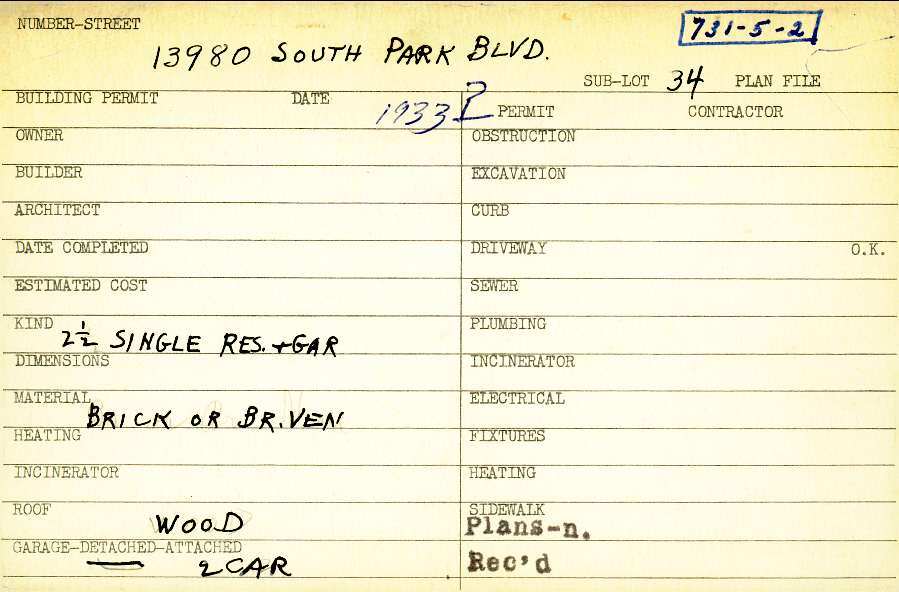 NUMBER-STREET 731-5-2
13980 SOUTH PARK BLVD.
SUB-LOT 34 PLAN FILE
BUILDING PERMIT DATE 1933 PERMIT CONTRACTOR
OWNER OBSTRUCTION
BUILDER EXCAVATION
ARCHITECT CURB
DATE COMPLETED DRIVEWAY O.K.
ESTIMATED COST SEWER
KIND 2½ SINGLE RES. + GAR PLUMBING
DIMENSIONS INCINERATOR
MATERIAL BRICK OR BR. VEN ELECTRICAL
HEATING FIXTURES
INCINERATOR HEATING
ROOF WOOD SIDEWALK
Plans-n.
GARAGE-DETACHED-ATTACHED
2 CAR Rec'd